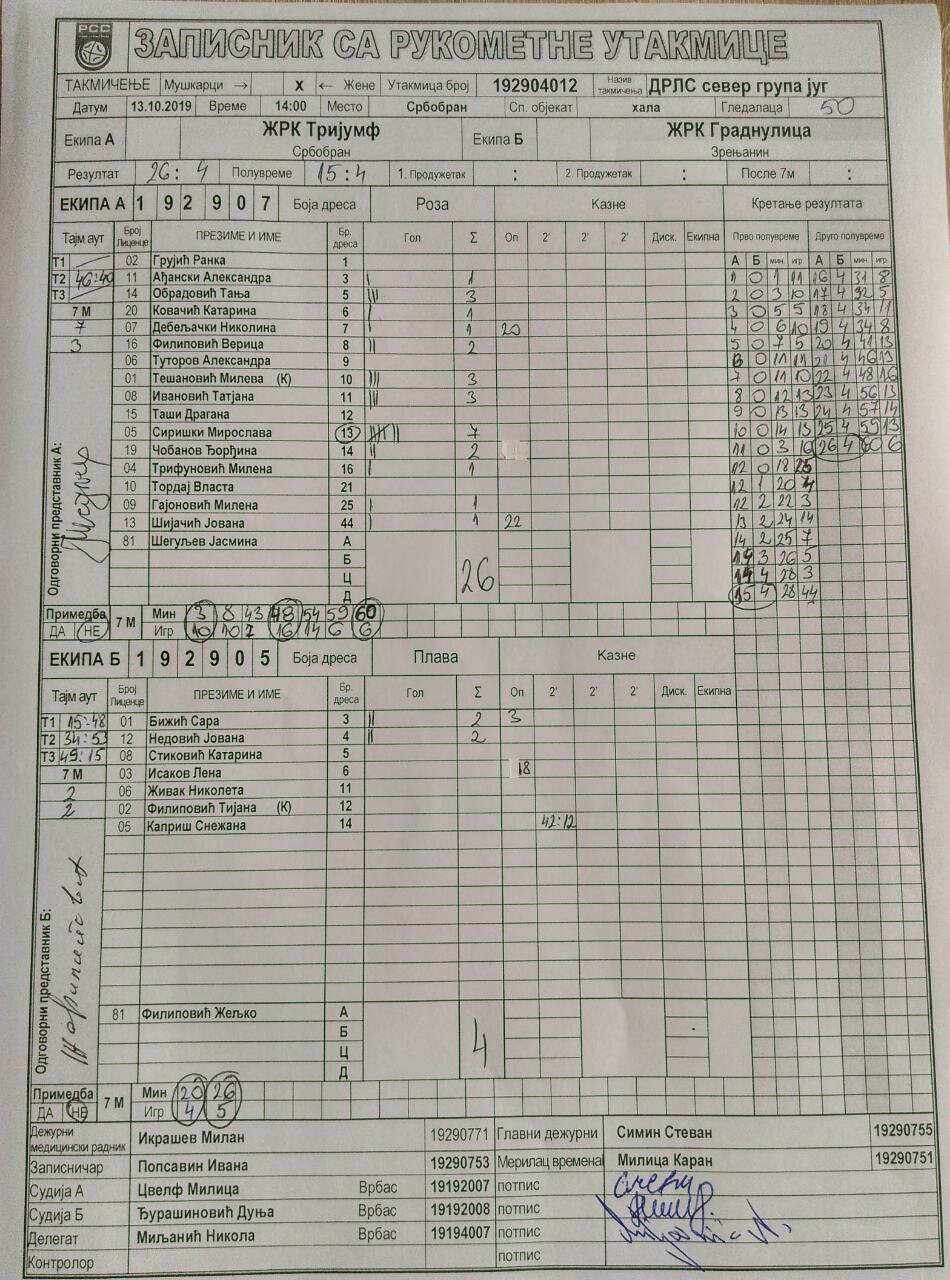 РСС
ЗАПИСНИК СА РУКОМЕТНЕ УТАКМИЦЕ
ТАКМИЧЕЊЕ Мушкарци → X ← Жене Утакмица број 192904012 Назив такмичења ДРЛС север група југ
Датум 13.10.2019 Време 14:00 Место Србобран Сп. објекат хала Гледалаца 50
Екипа А ЖРК Тријумф Екипа Б ЖРК Граднулица
Србобран Зрењанин
Резултат 26:4 Полувреме 15:4 1. Продужетак : 2. Продужетак : После 7м :
ЕКИПА А 1 9 2 9 0 7 Боја дреса Роза Казне Кретање резултата
Тајм аут Број Лиценце ПРЕЗИМЕ И ИМЕ Бр. дреса Гол Σ Оп 2' 2' 2' Диск. Екипна Прво полувреме Друго полувреме
А Б мин. игр. А Б мин. игр.
Т1 02 Грујић Ранка 1
Т2 46:40 11 Ађански Александра 3 | 1 1 0 1 11 16 4 31 8
Т3 14 Обрадовић Тања 5 ||| 3 2 0 3 10 17 4 32 5
7 М 20 Ковачић Катарина 6 | 1 3 0 5 5 18 4 34 11
7 07 Дебељачки Николина 7 | 1 20 4 0 6 10 19 4 34 8
3 16 Филиповић Верица 8 || 2 5 0 7 5 20 4 41 13
06 Туторов Александра 9 6 0 11 11 21 4 46 13
01 Тешановић Милева (К) 10 ||| 3 7 0 11 10 22 4 48 16
08 Ивановић Татјана 11 ||| 3 8 0 12 13 23 4 56 13
15 Таши Драгана 12 9 0 13 13 24 4 57 14
05 Сиришки Мирослава 13 7 10 0 14 13 25 4 59 13
19 Чобанов Ђорђина 14 || 2 11 0 3 16 26 4 60 6
04 Трифуновић Милена 16 | 1 12 0 18 25
10 Тордај Власта 21 12 1 20 4
09 Гајоновић Милена 25 | 1 12 2 22 3
13 Шијачић Јована 44 | 1 22 13 2 24 14
81 Шегуљев Јасмина А 14 2 25 7
Б 14 3 26 5
Ц 26 14 4 28 3
Д 15 4 28 44
Одговорни представник А:
Примедба 7 М Мин 3 8 43 48 54 59 60
ДА НЕ Игр 10 10 7 16 14 6 6
ЕКИПА Б 1 9 2 9 0 5 Боја дреса Плава Казне
Тајм аут Број Лиценце ПРЕЗИМЕ И ИМЕ Бр. дреса Гол Σ Оп 2' 2' 2' Диск. Екипна
Т1 15:48 01 Бижић Сара 3 || 2 3
Т2 34:53 12 Недовић Јована 4 || 2
Т3 49:15 08 Стиковић Катарина 5
7 М 03 Исаков Лена 6 18
2 06 Живак Николета 11
2 02 Филиповић Тијана (К) 12
05 Каприш Снежана 14 42:12
Одговорни представник Б:
81 Филиповић Жељко А
Б
Ц 4
Д
Примедба 7 М Мин 20 26
ДА НЕ Игр 4 5
Дежурни медицински радник Икрашев Милан 19290771 Главни дежурни Симин Стеван 19290755
Записничар Попсавин Ивана 19290753 Мерилац времена Милица Каран 19290751
Судија А Цвелф Милица Врбас 19192007 потпис
Судија Б Ђурашиновић Дуња Врбас 19192008 потпис
Делегат Миљанић Никола Врбас 19194007 потпис
Контролор потпис